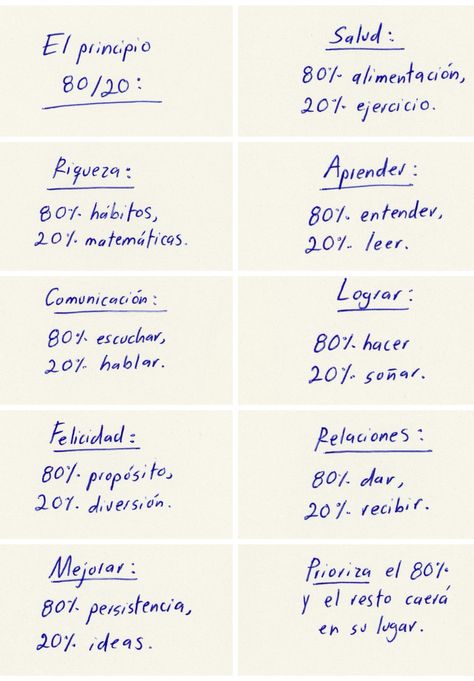 El principio
80/20:
Salud:
80% alimentación,
20% ejercicio.
Riqueza:
80% hábitos,
20% matemáticas.
Aprender:
80% entender,
20% leer.
Comunicación:
80% escuchar,
20% hablar.
Lograr:
80% hacer
20% soñar.
Felicidad:
80% propósito,
20% diversión.
Relaciones:
80% dar,
20% recibir.
Mejorar:
80% persistencia,
20% ideas.
Prioriza el 80%
y el resto caerá
en su lugar.